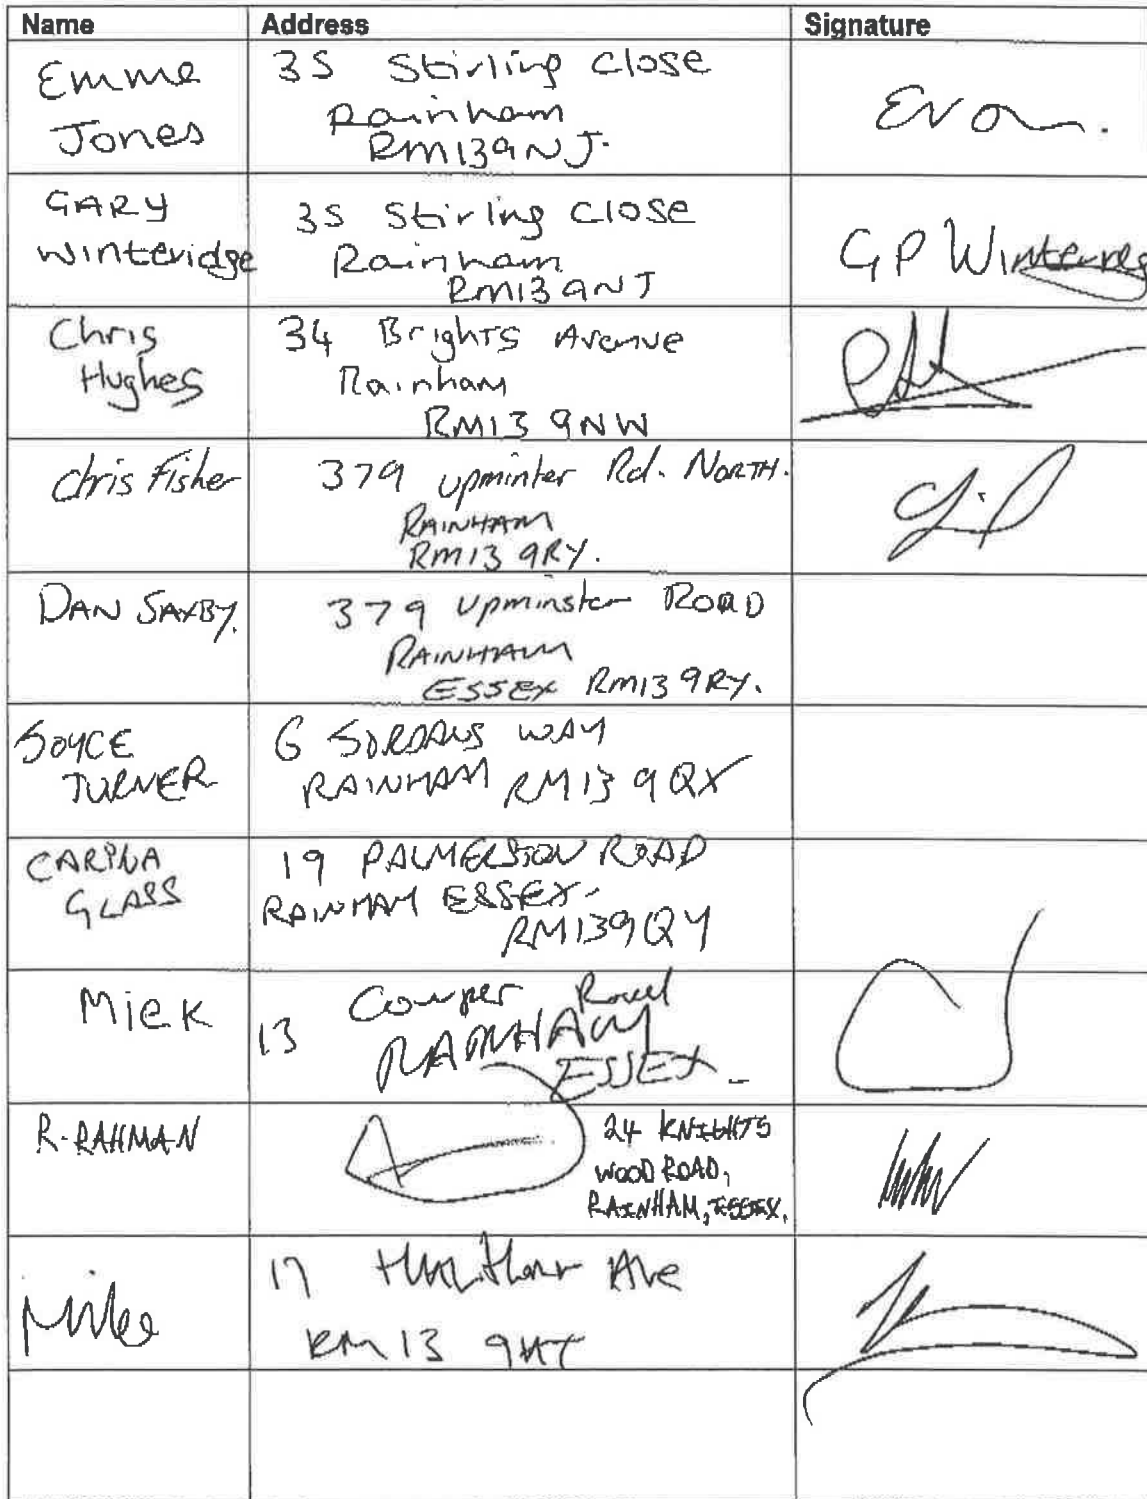 Name Address Signature
Emma 35 Stirling Close
Jones Rainham
RM139NJ.
GARY 35 Stirling Close
Winteridge Rainham GP Winteridg
RM13 9NJ
Chris 34 Brights Avenue
Hughes Rainham
RM13 9NW
Chris Fisher 379 upminter Rd. NORTH.
RAINHAM
RM13 9RY.
DAN SAXBY. 379 Upminster ROAD
RAINHAM
ESSEX RM13 9RY.
JOYCE 6 JORDANS WAY
TURNER RAINHAM RM13 9QX
CARINA 19 PALMERSTON ROAD
GLASS RAINHAM ESSEX.
RM139QY
Mick 13 Cowper Road
RAINHAM
ESSEX
R.RAHMAN 24 KNIGHTS
WOOD ROAD,
RAINHAM, ESSEX.
Mike 17 Ave
RM13